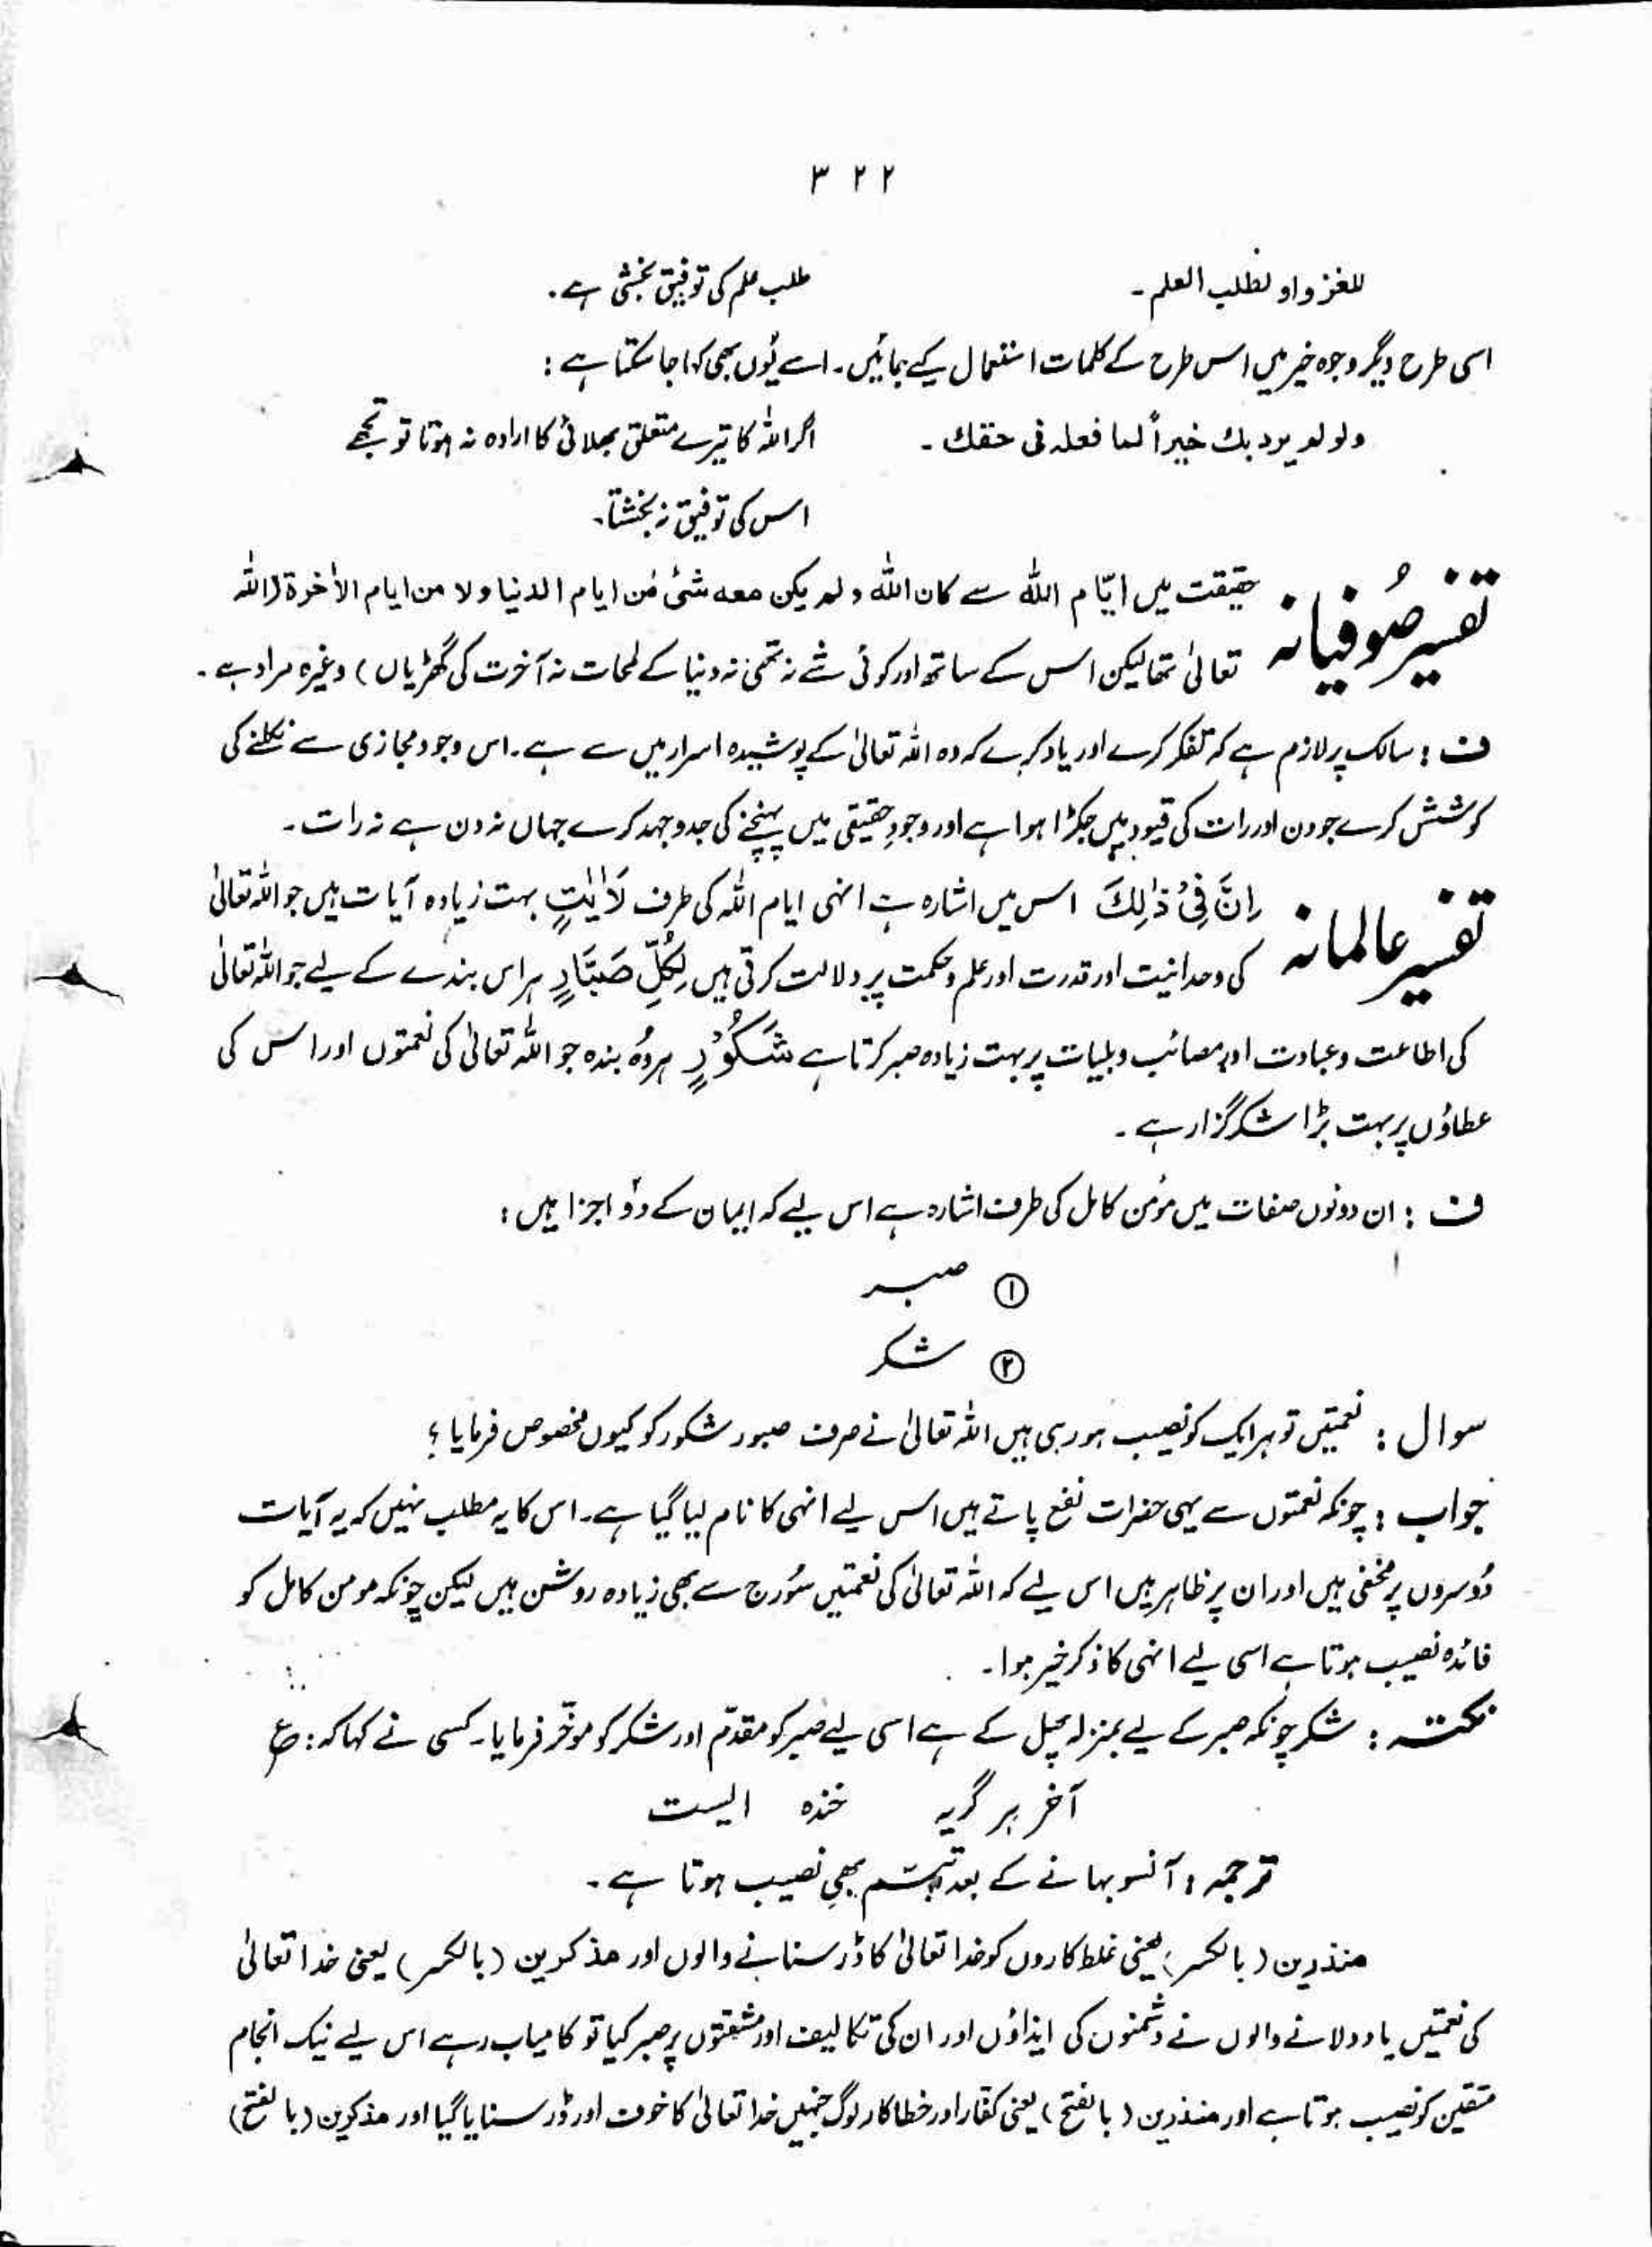 ۳۲۲
للغزو او لطلب العلم۔ طلب علم کی توفیق بخشی ہے۔
اسی طرح دیگر وجوہ خیر میں اس طرح کے کلمات استعمال کیے جائیں۔ اسے یُوں بھی کہا جا سکتا ہے :
ولو لم یرد بك خیراً لما فعله فی حقك ۔ اگر اللہ کا تیرے متعلق بھلائی کا ارادہ نہ ہوتا تو تجھے
اس کی توفیق نہ بخشتا۔
تفسیر صُوفیانہ حقیقت میں ایّام اللہ سے کان اللہ و لم یکن معه شیٔ من ایام الدنیا و لا من ایام الاٰخرة (اللہ
تعالیٰ تھا لیکن اس کے ساتھ اور کوئی شے نہ تھی نہ دنیا کے لمحات نہ آخرت کی گھڑیاں) وغیرہ مراد ہے۔
ف : سالک پر لازم ہے کہ تفکر کرے اور یاد کرے کہ وہ اللہ تعالیٰ کے پوشیدہ اسرار میں سے ہے۔ اس وجود مجازی سے نکلنے کی
کوشش کرے جو دن اور رات کی قیود میں جکڑا ہوا ہے اور وجودِ حقیقی میں پہنچنے کی جدوجہد کرے جہاں نہ دن ہے نہ رات۔
تفسیر عالمانہ اِنَّ فِیْ ذٰلِكَ اس میں اشارہ ہے انہی ایام اللہ کی طرف لَاٰیٰتٍ بہت زیادہ آیات ہیں جو اللہ تعالیٰ
کی وحدانیت اور قدرت اور علم و حکمت پر دلالت کرتی ہیں لِكُلِّ صَبَّارٍ ہر اس بندے کے لیے جو اللہ تعالیٰ
کی اطاعت و عبادت اور مصائب و بلیات پر بہت زیادہ صبر کرتا ہے شَكُوْرٍ ہر وُہ بندہ جو اللہ تعالیٰ کی نعمتوں اور اس کی
عطاؤں پر بہت بڑا شکر گزار ہے۔
ف : ان دونوں صفات میں مؤمن کامل کی طرف اشارہ ہے اس لیے کہ ایمان کے دو اجزا ہیں :
① صبر
② شکر
سوال : نعمتیں تو ہر ایک کو نصیب ہو رہی ہیں اللہ تعالیٰ نے صرف صبور شکور کو کیوں مخصوص فرمایا ؟
جواب : چونکہ نعمتوں سے یہی حضرات نفع پاتے ہیں اس لیے انہی کا نام لیا گیا ہے۔ اس کا یہ مطلب نہیں کہ یہ آیات
دُوسروں پر مخفی ہیں اور ان پر ظاہر ہیں اس لیے کہ اللہ تعالیٰ کی نعمتیں سُورج سے بھی زیادہ روشن ہیں لیکن چونکہ مومن کامل کو
فائدہ نصیب ہوتا ہے اسی لیے انہی کا ذکر خیر ہوا۔
نکتہ : شکر چونکہ صبر کے لیے بمنزلہ پھل کے ہے اسی لیے صبر کو مقدّم اور شکر کو مؤخّر فرمایا۔ کسی نے کہا کہ : ع
آخر ہر گریہ خندہ ایست
ترجمہ : آنسو بہانے کے بعد تبسّم بھی نصیب ہوتا ہے۔
منذرین (بالکسر) یعنی غلط کاروں کو خدا تعالیٰ کا ڈر سنانے والوں اور مذکرین (بالکسر) یعنی خدا تعالیٰ
کی نعمتیں یاد دلانے والوں نے دشمنوں کی ایذاؤں اور ان کی تکالیف اور مشقتوں پر صبر کیا تو کامیاب رہے اس لیے نیک انجام
متقین کو نصیب ہوتا ہے اور منذرین (بالفتح) یعنی کفار اور خطاکار لوگ جنہیں خدا تعالیٰ کا خوف اور ڈر سنایا گیا اور مذکرین (بالفتح)